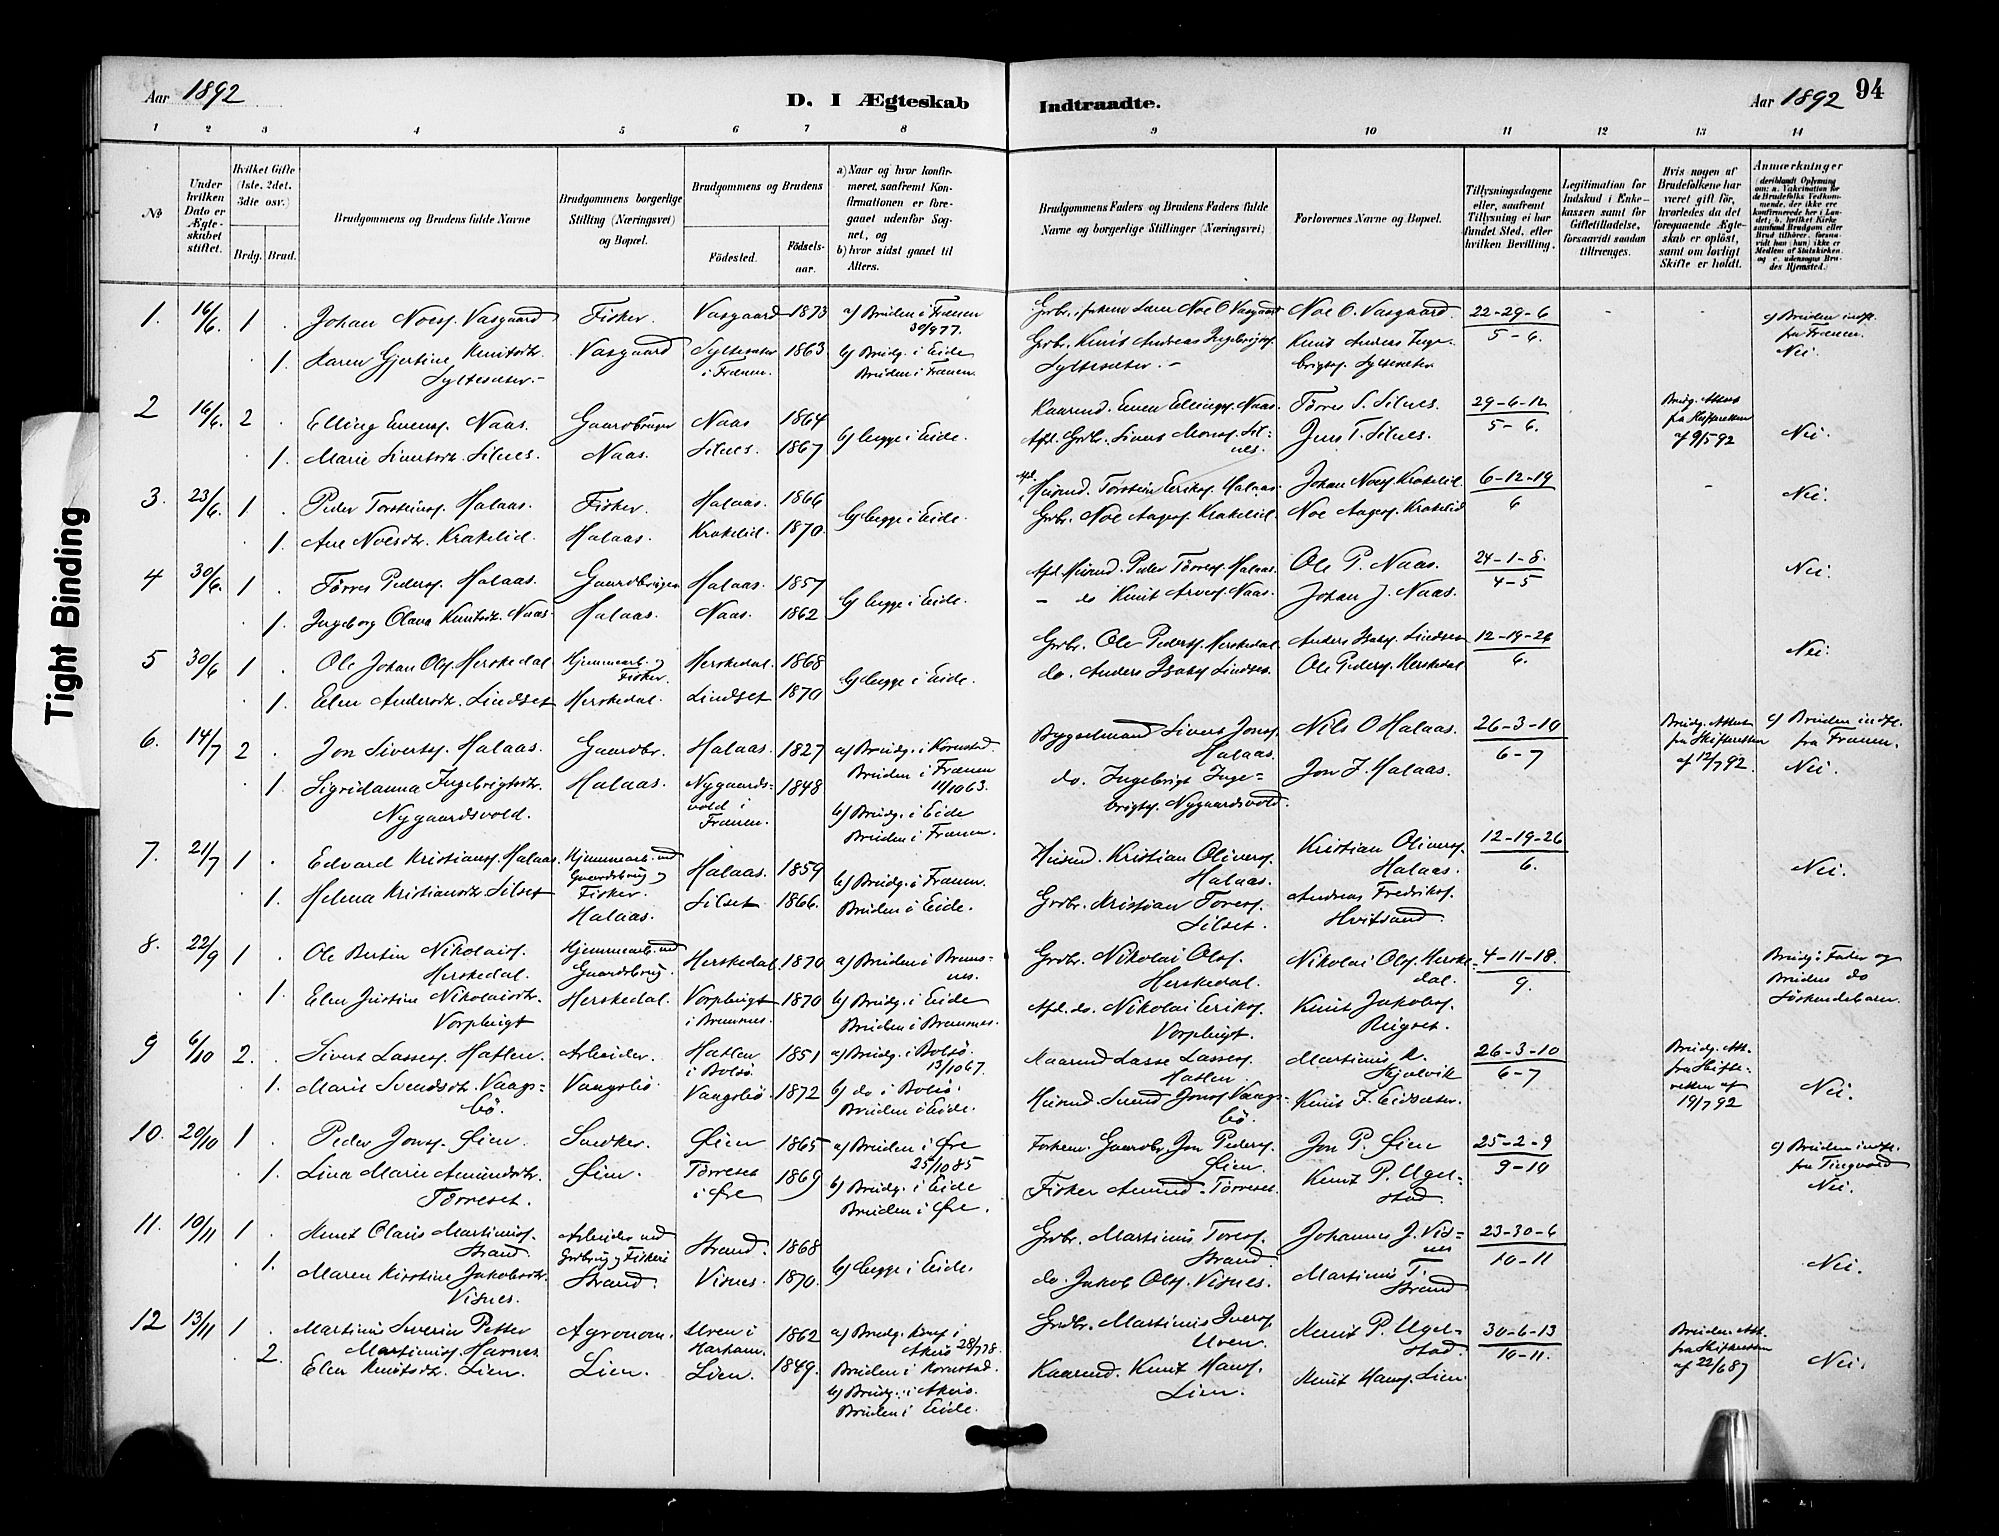 Aar 1892
D. I Ægteskab Indtraadte.
Aar 1892
94
1 2 3 4 5 6 7 8 9 10 11 12 13 14
№
Under hvilken Dato er Ægteskabet stiftet.
Hvilket Gifte (1ste, 2det, 3die osv.)
Brdg. Brud.
Brudgommens og Brudens fulde Navne
Brudgommens borgerlige Stilling (Næringsvei) og Bopæl.
Brudgommens og Brudens
Fødested.
Fødsels-aar.
a) Naar og hvor konfirmeret, saafremt Konfirmationen er foregaaet udenfor Sognet, og
b) hvor sidst gaaet til Alters.
Brudgommens Faders og Brudens Faders fulde Navne og borgerlige Stillinger (Næringsvei)
Forlovernes Navne og Bopæl.
Tillysningsdagene eller, saafremt Tillysning ei har fundet Sted, efter hvilken Bevilling.
Legitimation for Indskud i Enkekassen samt for Giftetilladelse, forsaavidt saadan tiltrænges.
Hvis nogen af Brudefolkene har været gift før, hvorledes da det foregaaende Ægteskab er opløst, samt om lovligt Skifte er holdt.
Anmærkninger
(deriblandt Oplysning om: a. Vakcination for de Brudefolks Vedkommende, der ikke ere konfirmerede her i Landet; b. hvilket Kirkesamfund Brudgom eller Brud tilhører, forsaavidt han (hun) ikke er Medlem af Statskirken, og c. udensogns Brudes Hjemsted.)
1. 16/6. 1 . Johan Noes. Vasgaard Fisker. Vasgaard 1873 a) Bruden i Frænen 30/9 77. Noe O. Vasgaard. 22-29-6 - - c) Bruden indfl. fra Frænen.
. 1. Karen Gjertine Knutsdtr. Syltesæter.- Vasgaard Syltesæter i Frænen. 1863 b) Brudg. i Eide Bruden i Frænen Grbr. Knut Andreas Ingebrigts. Syltesæter.- Knut Andreas Ingebrigts. Syltesæter 5-6. Nei.
2 16/6. 2 . Elling Evens. Naas. Gaardbruger Naas 1864 b) begge i Eide. Kaarmd. Even Ellings. Naas Tørres S. Silnes. 29-6-12 Brudg. Attest fra Skifteretten af 9/5 92 Nei.
. 1. Marie Sivertsdtr. Silnes. Naas. Silnes. 1867 Afd. Grbr. Sivert Mons. Silnes. Jens T. Silnes. 5-6.
3. 23/6. 1 . Peder Torsteins. Halaas. Fisker. Halaas. 1866 b) begge i Eide. Afd. Husmd. Torstein Eriks. Halaas. Johan Noes. Krakelid. 6-12-19 - Nei.
1. Ane Noesdtr. Krakelid. Halaas. Krakelid. 1870 Grbr. Noe Aages. Krakelid. Noe Aages. Krakelid 6
4 30/6. 1 . Tørres Peders. Halaas. Gaardbruger Halaas. 1857 b) begge i Eide. Afd. Husmd. Peder Tørres. Halaas. Ole P. Naas. 24-1-8. Nei.
. 1. Ingeborg Olava Knutsdtr. Naas. Halaas. Naas. 1862 - do Knut Arves. Naas. Johan J. Naas. 4-5
5 30/6 1 . Ole Johan Ols. Herskedal. Hjemmearb. og Fisker. Herskedal. 1868 b) begge i Eide. Grbr. Ole Peders. Herskedal. Anders Isaks. Lindset 12-19-26 Nei.
1. Elen Andersdtr. Lindset Herskedal. Lindset 1870 do. Anders Isaks. Lindset. Ole Peders. Herskedal 6.
6. 14/7 2 . Jon Siverts. Halaas. Gaardbr. Halaas. 1827 a) Brudg. i Kornstad. Bruden i Frænen 11/10 63. Bygselmand Sivert Jons. Halaas. Nils O Halaas. 26-3-10 Brudg. Attest fra Skifteretten af 12/7 92. c) Bruden indfl. fra Frænen.
. 1. Sigridanna Ingebrigtsdtr. Nygaardsvold. Halaas. Nygaardsvold i Frænen. 1848 b) Brudg. i Eide Bruden i Frænen. do. Ingebrigt Ingebrigts. Nygaardsvold. Jon J. Halaas. 6-7 Nei.
7. 21/7 1 . Edvard Kristians. Halaas. Hjemmearb. ved Gaardsbrug og Fisker. Halaas. 1859 b) Brudg. i Frænen. Husmd. Kristian Olivers. Halaas. Kristian Olivers. Halaas. 12-19-26 Nei.
. 1. Helena Kristiansdtr. Silset Halaas. Silset 1866. Bruden i Eide. Grdbr. Kristian Tores. Silset. Andreas Fredriks. Hvitsand. 6.
8. 22/9 1 . Ole Bertin Nikolais. Herskedal. Hjemmearb. ved Gaardsbrug. Herskedal 1870 a) Bruden i Bremsnes. Grdbr. Nikolai Ols. Herskedal. Nikolai Ols. Herskedal. 4-11-18. Brudg. Fader og Brudens do Søskendebarn.
. 1. Elen Justine Nikolaisdtr. Vorpbugt Herskedal. Vorpbugt i Bremnes. 1870 b) Brudg. i Eide Bruden i Bremnes. Afd. do. Nikolai Eriks. Vorpbugt. Knut Jakobs. 9.
9 6/10 2. . Sivert Lasses. Hatlen. Arbeider. Hatlen i Bolsø. 1851 a) Brudg. i Bolsø. 13/10 67. Kaarmd Lasse Lasses. Hatlen Martinus K. Skjelvik 26-3-10 Brudg. Att. fra Skifteretten af 19/7 92 Nei.
. 1. Marit Svendsdtr. Vaagsbø. Vaagsbø. Vaagsbø. 1872 b) do i Bolsø. Bruden i Eide. Husmd. Svend Jons. Vaagsbø. 6-7
10. 20/10 1 . Peder Jons. Øien. Snedker. Øien 1865 a) Bruden i Øre 25/10 85 Jon Peders. Øien. Jon P. Øien 25-2-9 c) Bruden indfl. fra Tingvold
. 1. Lina Marie Amundsdtr. Tørreset. Øien. Tørreset i Øre 1869 b) Brudg. i Eide Bruden i Øre. Fisker Amund Tørreset. Knut P. Ugelstad. 9-10 Nei.
11. 10/11 1 . Knut Olaus Martinus. Strand. Arbeider ved Grdbrug og Fiskeri Strand. 1868 b) begge i Eide. Grdbr. Martinus Tores. Strand. Johannes J. Visnes 23-30-6 Nei.
. 1. Maren Kirstine Jakobsdtr. Visnes. Strand. Visnes. 1870. do. Jakob Ols. Visnes. Martinus T. Strand 10-11
12 13/11 1 . Martinus Severin Petter Martinus. Harnes. Agronom. Uren i Harham. 1862 a) Brudg. i Akerø 28/7 78. Bruden i Kornstad. Grdbr. Martinus Ivers. Uren. Knut P. Ugelstad. 30-6-13 Bruden Att. fra Skifteretten af 22/6 87 Nei.
. 2. Elen Knutsdtr. Lien. Lien. Lien. 1849. b) Brudg. i Akerø. Bruden i Eide. Kaarmd. Knut Hans. Lien. Knut Hans. Lien 10-11.
Tight Binding